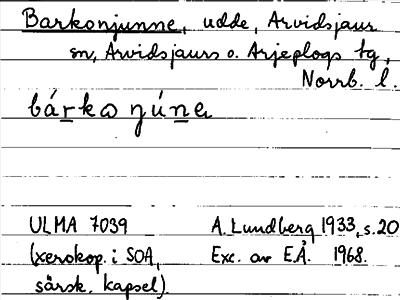 Barkonjunne, udde, Arvidsjaur
sn, Arvidsjaurs o. Arjeplogs tg,
Norrb. l.
bárkɷ ŋúnen
ULMA 7039
(xerokop. i SOA,
särsk. kapsel).
A. Lundberg 1933, s.20
Exc. av E.Å. 1968.